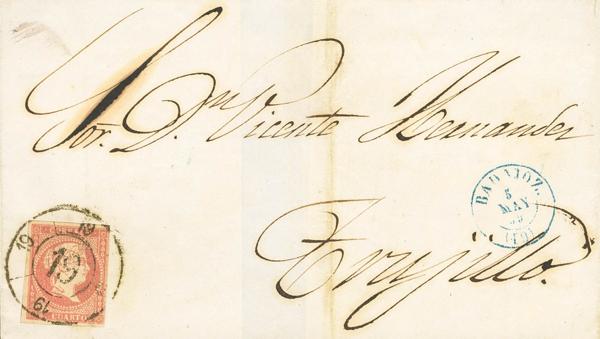 Sor. Dn. Vicente Hernandez
Trujillo.
BADAJOZ.
5
MAY
(10)
19
19
19
CUARTO